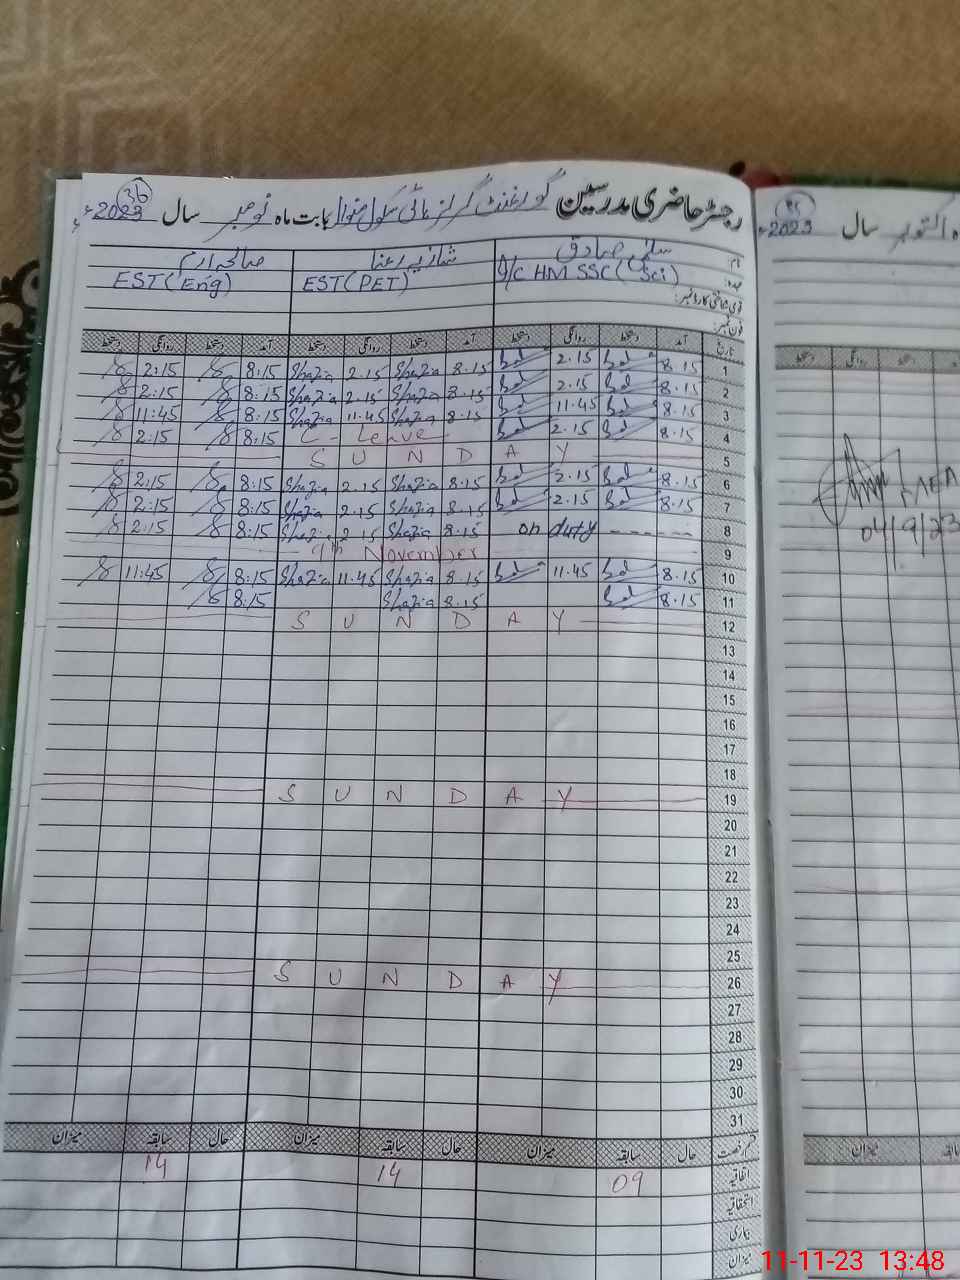 رجسٹر حاضری مدرسین گورنمنٹ گرلز ہائی سکول بابت ماہ نومبر سال 2023ء
36
نام: سلمیٰ صادق شازیہ رعنا صالحہ ارم
عہدہ: I/C HM SSC (Sci) EST (PET) EST (Eng)
قومی شناختی کارڈ نمبر:
فون نمبر:
تاریخ آمد دستخط روانگی دستخط آمد دستخط روانگی دستخط آمد دستخط روانگی دستخط
1 8.15 2.15 8.15 Shazia 2.15 Shazia 8:15 2:15
2 8.15 2.15 8.15 Shazia 2.15 Shazia 8:15 2:15
3 8.15 11.45 8.15 Shazia 11.45 Shazia 8:15 11:45
4 8.15 2.15 C - Leave 8:15 2:15
5 S U N D A Y
6 8.15 2.15 8.15 Shazia 2.15 Shazia 8:15 2:15
7 8.15 2.15 8.15 Shazia 2.15 Shazia 8:15 2:15
8 on duty ------ 8.15 Shazia 2.15 Shazia 8:15 2:15
9 9th November
10 8.15 11.45 8.15 Shazia 11.45 Shazia 8:15 11:45
11 8.15 8.15 Shazia 8:15
12 S U N D A Y
13
14
15
16
17
18
19 S U N D A Y
20
21
22
23
24
25
26 S U N D A Y
27
28
29
30
31
قسم رخصت حال سابقہ میزان حال سابقہ میزان حال سابقہ میزان
اتفاقیہ 09 14 14
استحقاقیہ
بیماری
میزان
ماہ اکتوبر سال 2023ء
دستخط روانگی دستخط
AEO
04/9/23
میزان
11-11-23 13:48